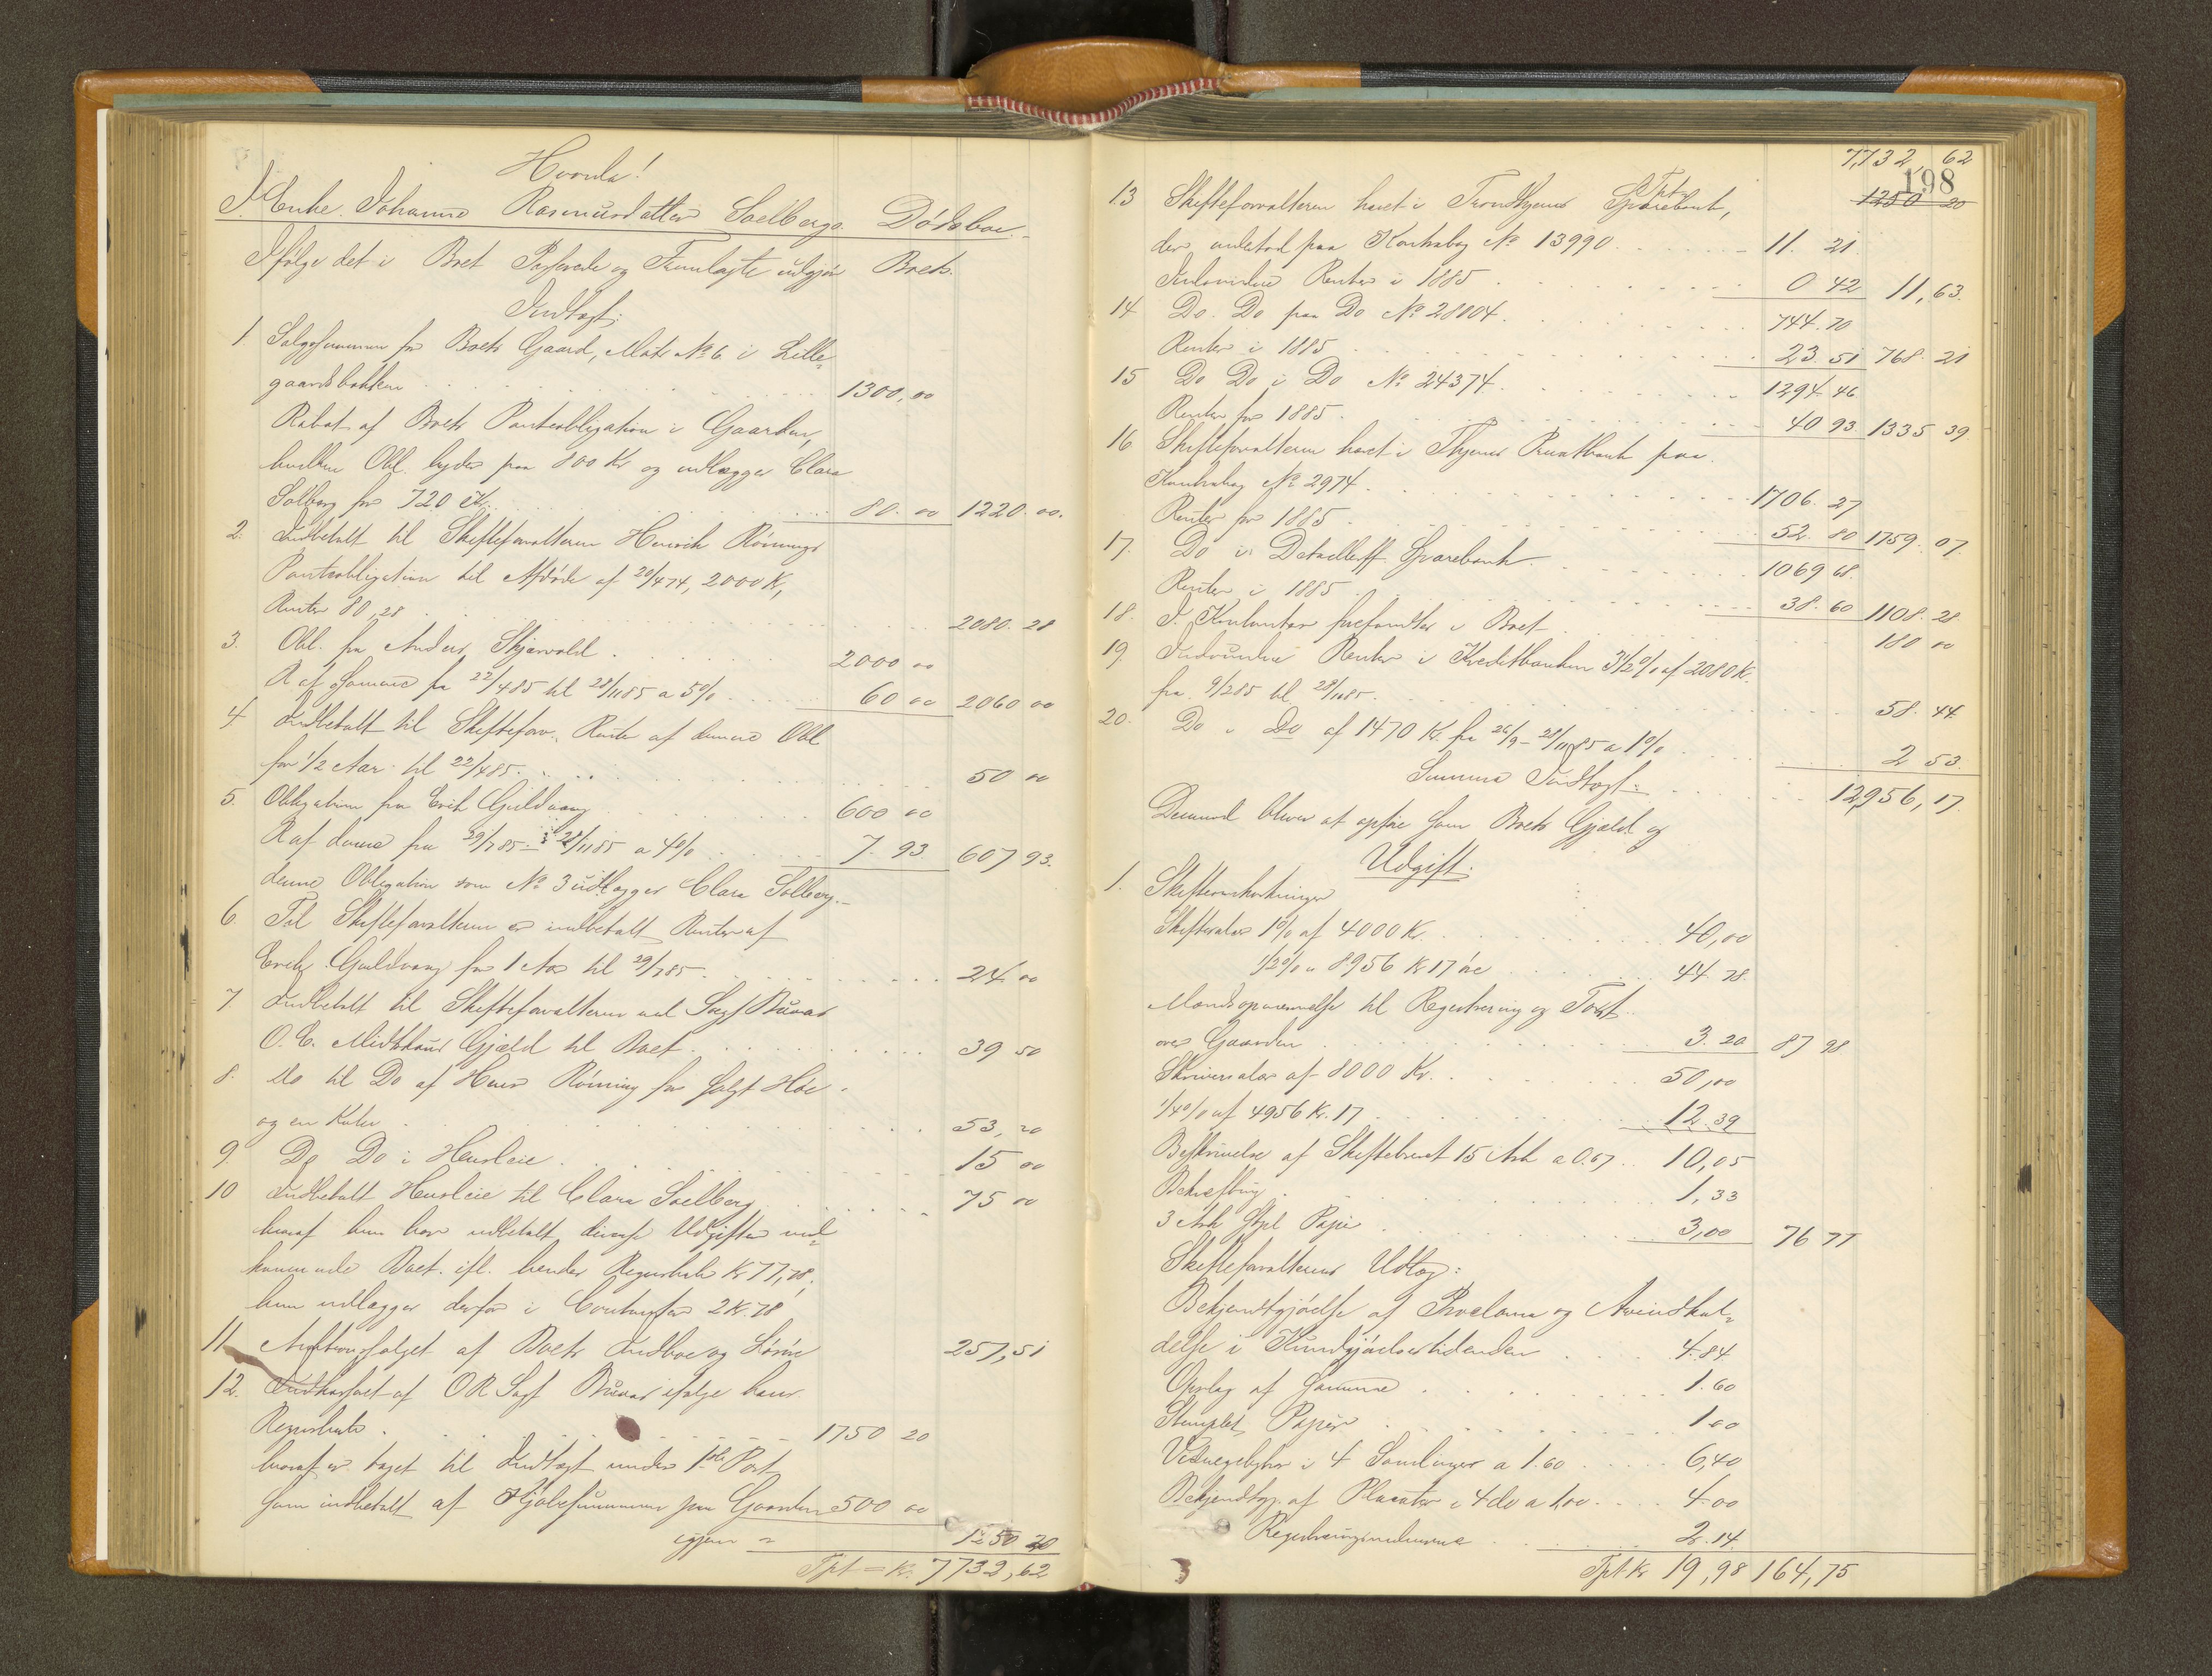 Hvorda!
I Enke Johanne Rasmusdatter Soelbergs Dødsboe
Ifølge det i Boet Passerede og Fremlagte udgjør Boets
Indtægt:
1 Salgssummen for Boets Gaard, Matr No 6 i Lille-
gaardsbakken 1300,00
Rabat af Boets Pantobligation i Gaarden,
hvilken Obl. lyder paa 800 Kr og udlægges Clara
Solberg for 720 Kr. 80.00 1220.00.
2. Indbetalt til Skifteforvalteren Henrik Rønnings
Pantobligation til Afdøde af 20/4 74, 2000 Kr,
Renter 80,28 2080.28
3. Obl. fra Anders Skjærvold 2000 00
R af Samme fra 22/4 85 til 28/11 85 a 5% 60 00 2060 00
4 Indbetalt til Skifteforv. Renter af denne Obl
for 1/2 Aar til 22/4 85. 50 00
5. Obligation fra Erik Guldvang 600 00
R af denne fra 29/7 85 - 28/11 85 a 4% 7.93 607 93.
denne Obligation som No 3 udlægges Clara Solberg.
6. Til Skifteforvalteren er indbetalt Renter af
Erik Guldvang for 1 Aar til 29/7 85. 24 00
7. Indbetalt til Skifteforvalteren ved Sagf Buvar
O. E. Midthaus Gjæld til Boet 39 50
8. Do til Do af Henr Rønning for solgt Høe
og en Kalv 53,20
9. Do Do i Husleie 15 00
10 Indbetalt Husleie til Clara Soelberg 75 00
hvoraf hun har udbetalt diverse Udgifter ved-
kommende Boet. ifl. hendes Regnskab Kr 77,78,
hun udlægges derfor i Contanter 2 Kr. 78
11 Auktionssalget af Boets Indboe og Løsøre 257,51
12. Indkasseret af OR Sagf Buvar ifølge hans
Regnskab 1750 20
hvoraf er taget til Indtægt under 1ste Post
som indbetalt af Kjøbesummen paa Gaarden 500 00
igjen = 1250 20
Tpt = Kr. 7732,62
7,732,62
198
Tpt 1250 20
13 Skifteforvalteren hævet i Trondhjems Sparebank,
der indestod paa Kontrabog No 13990 11.21.
Indvundne Renter i 1885 0 42 11,63.
14 Do. Do paa Do No 28004 744.70
Renter i 1885 23.51 768.21
15 Do Do i Do No 24374 1294.46
Renter for 1885 40 93. 1335 39
16 Skifteforvalteren hævet i Thjems Privatbank paa
Kontrabog No 2974 1706.27
Renter for 1885 52.80 1759.07.
17. Do i Sparebank 1069 68.
Renter i 1885 38.60 1108.28
18. I Kontanter forefandtes i Boet 180 00
19. Indvundne Renter i Kreditbanken 3 1/2% af 2080 K.
fra 9/2 85 til 28/11 85 58.44
20. Do " Do af 1470 Kr. fra 26/9 - 28/11 85 a 1% 2 53.
Summa Indtægt: 12,956,17
Derimod bliver at opføre som Boets Gjæld og
Udgift.
1. Skifteomkostninger
Skiftesalær 1% af 4000 Kr. 40,00
1/2% " 8956 Kr 17 øre 44.78.
Mandsopnævnelse til Registrering og Taxt
over Gaarden 3.20 87 98
Skriversalær af 8000 Kr. 50,00
1/4% af 4956 Kr. 17 12.39
Beskrivelse af Skiftebrevet 15 Ark a 0.67 10,05
Bekræftning 1,33
3 Ark stpl Papir 3,00 76 77
Skifteforvalterens Udlæg:
Bekjendtgjørelse af Proclama og Arveindkal-
delse i Kundgjørelsestidenden 4.84
Opslag af samme 1.60
Stemplet Papir 1 00
Vidnegebyhr i 4 Samlinger a 1.60 6,40
Bekjendtgj. af Placater i 4 do a 1,00 4.00
Registreringsmændene 2.14
Tpt Kr 19,98 164,75